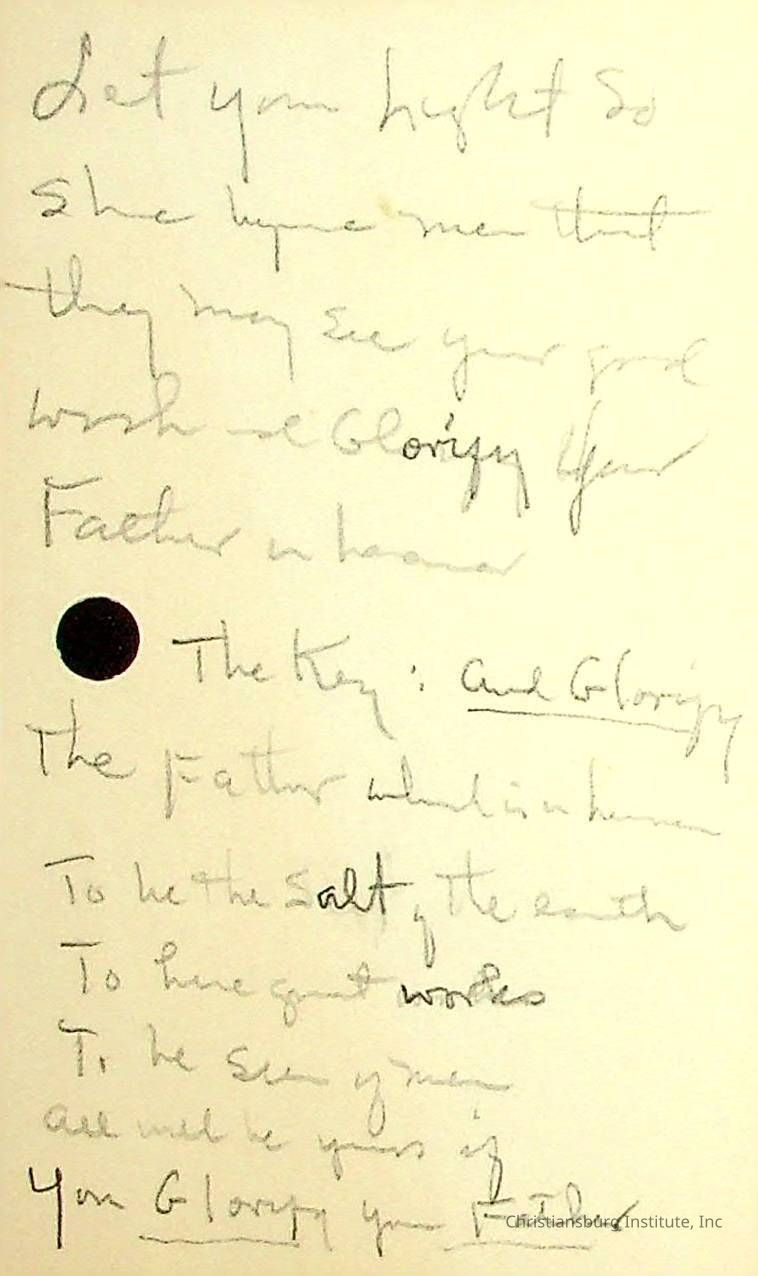 Let your Light So
Shine before men that
they may see your good
works and Glorify Your
Father in heaven
The Key : and Glorify
The Father which is in heaven
To be the Salt of the earth
To have great works
To be Seen of men
All will be yours if
You Glorify your Father
Christiansburg Institute, Inc